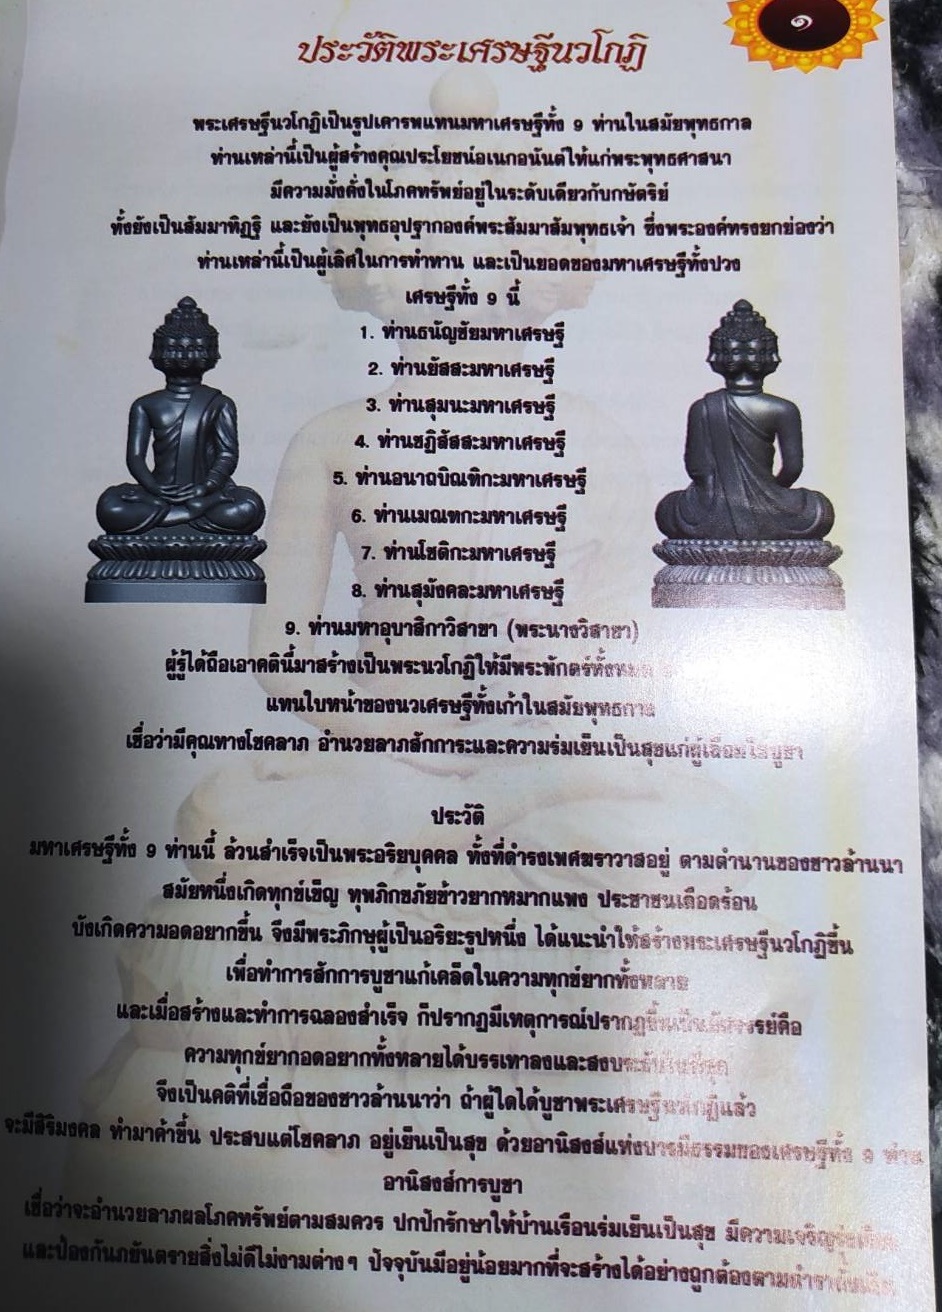 ๑
ประวัติพระเศรษฐีนวโกฏิ
พระเศรษฐีนวโกฏิเป็นรูปเคารพแทนมหาเศรษฐีทั้ง 9 ท่านในสมัยพุทธกาล
ท่านเหล่านี้เป็นผู้สร้างคุณประโยชน์อเนกอนันต์ให้แก่พระพุทธศาสนา
มีความมั่งคั่งในโภคทรัพย์อยู่ในระดับเดียวกับกษัตริย์
ทั้งยังเป็นสัมมาทิฏฐิ และยังเป็นพุทธอุปฐากองค์พระสัมมาสัมพุทธเจ้า ซึ่งพระองค์ทรงยกย่องว่า
ท่านเหล่านี้เป็นผู้เลิศในการทำทาน และเป็นยอดของมหาเศรษฐีทั้งปวง
เศรษฐีทั้ง 9 นี้
1. ท่านธนัญชัยมหาเศรษฐี
2. ท่านยัสสะมหาเศรษฐี
3. ท่านสุมนะมหาเศรษฐี
4. ท่านชฏิลัสสะมหาเศรษฐี
5. ท่านอนาถบิณฑิกะมหาเศรษฐี
6. ท่านเมณฑกะมหาเศรษฐี
7. ท่านโชติกะมหาเศรษฐี
8. ท่านสุมังคละมหาเศรษฐี
9. ท่านมหาอุบาสิกาวิสาขา (พระนางวิสาขา)
ผู้รู้ได้ถือเอาคตินี้มาสร้างเป็นพระนวโกฏิให้มีพระพักตร์ทั้งหมด
แทนใบหน้าของนวเศรษฐีทั้งเก้าในสมัยพุทธกาล
เชื่อว่ามีคุณทางโชคลาภ อำนวยลาภสักการะและความร่มเย็นเป็นสุขแก่ผู้เลื่อมใสบูชา
ประวัติ
มหาเศรษฐีทั้ง 9 ท่านนี้ ล้วนสำเร็จเป็นพระอริยบุคคล ทั้งที่ดำรงเพศฆราวาสอยู่ ตามตำนานของชาวล้านนา
สมัยหนึ่งเกิดทุกข์เข็ญ ทุพภิกขภัยข้าวยากหมากแพง ประชาชนเดือดร้อน
บังเกิดความอดอยากขึ้น จึงมีพระภิกษุผู้เป็นอริยะรูปหนึ่ง ได้แนะนำให้สร้างพระเศรษฐีนวโกฏิขึ้น
เพื่อทำการสักการบูชาแก้เคล็ดในความทุกข์ยากทั้งหลาย
และเมื่อสร้างและทำการฉลองสำเร็จ ก็ปรากฏมีเหตุการณ์ปรากฏขึ้นเป็นอัศจรรย์คือ
ความทุกข์ยากอดอยากทั้งหลายได้บรรเทาลงและสงบระงับในที่สุด
จึงเป็นคติที่เชื่อถือของชาวล้านนาว่า ถ้าผู้ใดได้บูชาพระเศรษฐีนวโกฏิแล้ว
จะมีสิริมงคล ทำมาค้าขึ้น ประสบแต่โชคลาภ อยู่เย็นเป็นสุข ด้วยอานิสงส์แห่งบารมีธรรมของเศรษฐีทั้ง 9 ท่าน
อานิสงส์การบูชา
เชื่อว่าจะอำนวยลาภผลโภคทรัพย์ตามสมควร ปกปักรักษาให้บ้านเรือนร่มเย็นเป็นสุข มีความเจริญรุ่งเรือง
และป้องกันภยันตรายสิ่งไม่ดีไม่งามต่างๆ ปัจจุบันมีอยู่น้อยมากที่จะสร้างได้อย่างถูกต้องตามตำรา